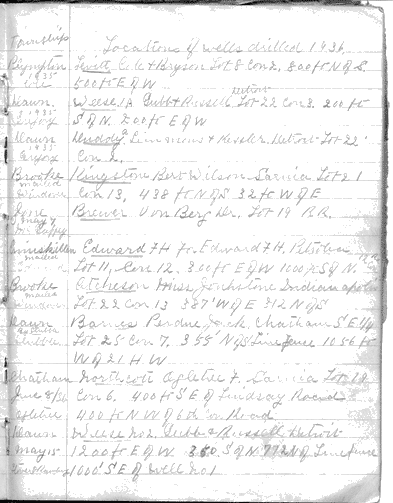 Township Locations of wells drilled 1936
Plympton Hewitt, Cole & Bryson Lot 8 Con 2, 800 ft N of S
1935 500 ft E of W
Dawn Weese 1A Gubb & Russell Detroit Lot 22 Con 3. 200 ft
1935 S of N. 200 ft E of W
Dawn Simmons & Kessler Detroit Lot 22
1935 Con 2,
Brooke Kingstone Bert Wilson Sarnia Lot 21
mailed Con 13, 438 ft N of S 32 ft W of E
Brewer Von Berg Dr. Lot 19 R.R.
May 7
Enniskillen Edward F H Jr. Edward F H. Petrolia
mailed Lot 11, Con 12. 300 ft E of W 1000 ft S of N.
Brooke Atcheson Miss, Indianapolis
mailed Lot 22 Con 13 387' W of E 312 N of S
Dawn Barnes Perdue Jack, Chatham S E 1/4
Lot 25 Con 7, 355' N of S Line fence 1056 ft
W of 21 H W
Chatham Northcott Apletree F. Sarnia Lot 18
June 8/36 Con 6. 400 ft S E of Lindsay Road
Apletree 400 ft N W of 6th Con Road
Dawn Weese No 2. Gubb & Russell Detroit
May 15 1200 ft E of W. 360 S of N 772 N of Line fence
1000' S E of Well No 1